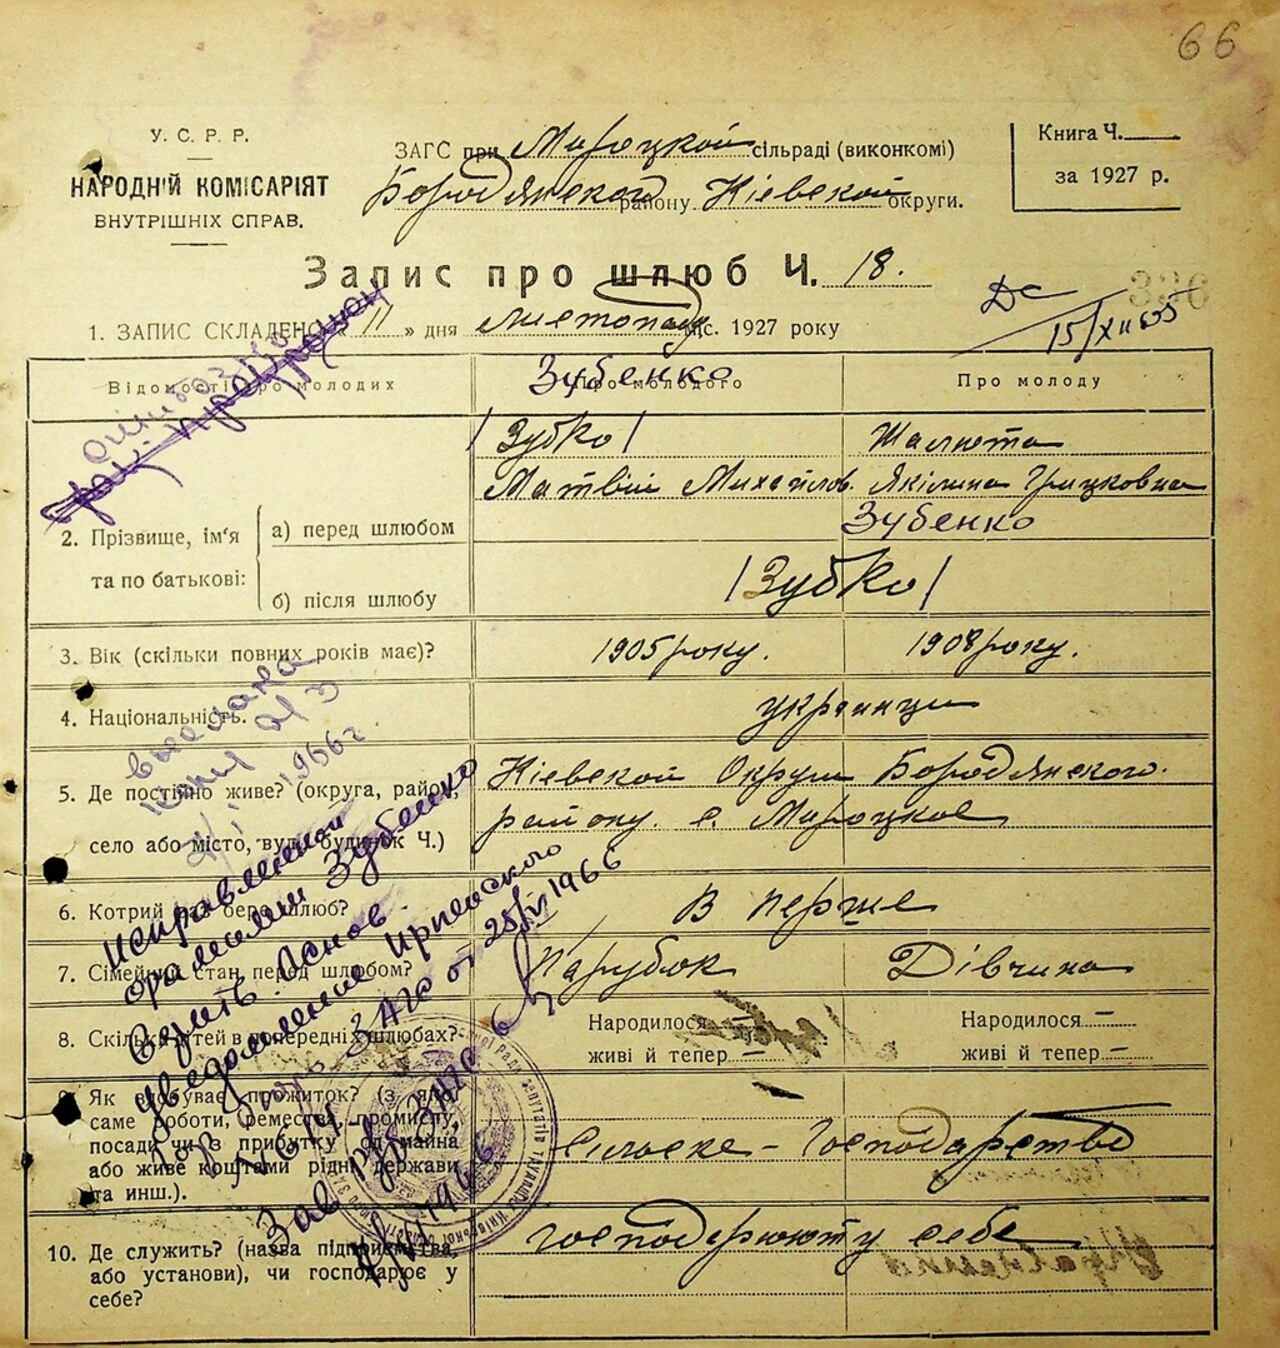 66
У. С. Р. Р.
НАРОДНІЙ КОМІСАРІЯТ
ВНУТРІШНІХ СПРАВ.
ЗАГС при Мироцкой сільраді (виконкомі)
Бородянского району Кіевской округи.
Книга Ч.
за 1927 р.
Запис про шлюб Ч. 18.
1. ЗАПИС СКЛАДЕНО „ 11 » дня листопаду міс. 1927 року
15/XII 55
336
Відомості про молодих
Про молодого
Про молоду
Зубенко
/Зубко/
Шалюта
Матвій Михайлов.
Якілина Грицковна
Зубенко
/Зубко/
2. Прізвище, ім'я
та по батькові:
а) перед шлюбом
б) після шлюбу
3. Вік (скільки повних років має)?
1905 року.
1908 року.
4. Національність.
українци
5. Де постійно живе? (округа, район,
село або місто, вул., будинок Ч.)
Кіевской Округи Бородянского.
району. с. Мироцкое
6. Котрий раз бере шлюб?
В перше
7. Сімейний стан перед шлюбом?
Парубок
Дівчина
8. Скільки дітей в попередніх шлюбах?
Народилося –
живі й тепер –
Народилося –
живі й тепер –
9. Як здобуває прожиток? (з якої
саме роботи, ремества, промислу,
посади чи з прибутку од майна
або живе коштами рідні, держави
та инш.).
Сільське – Господарство
10. Де служить? (назва підприємства,
або установи), чи господарює у
себе?
господарюють у себе
выслана
1966 г
Исправленной
фамилии Зубенко
верить. Основ
уведомление Ирпеского
ЗАГС от 25/VI 1966
Зав. ЗАГС
1966